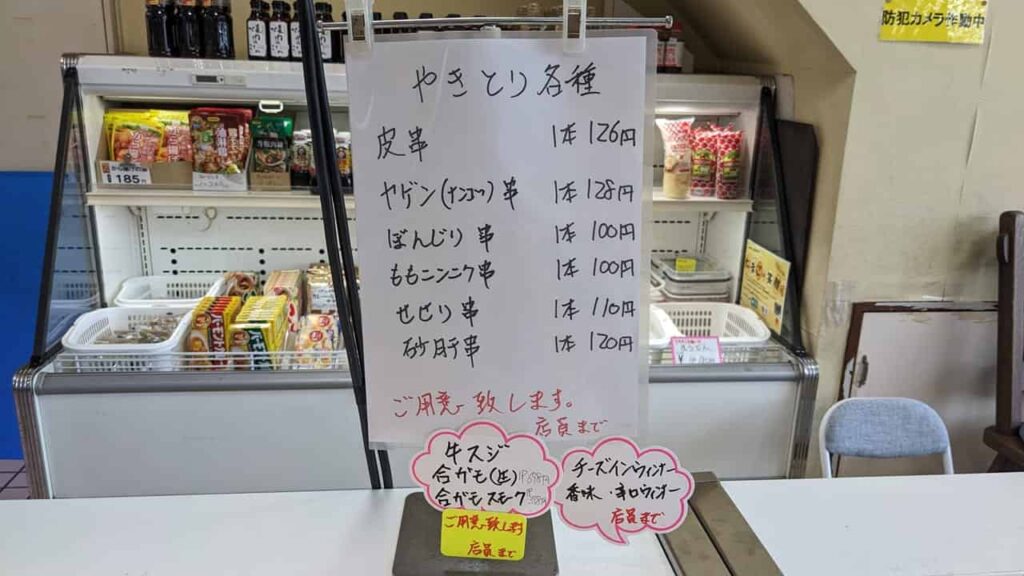 防犯カメラ作動中
やきとり各種
皮串 1本 126円
ヤゲン(ナンコツ)串 1本 128円
ぼんじり串 1本 100円
ももニンニク串 1本 100円
せせり串 1本 110円
砂肝串 1本 120円
ご用意致します。
店員まで
牛スジ
合がも(生)
合がもスモーク
ご用意致します
店員まで
チーズインウィンナー
香味・辛口ウィンナー
店員まで
185